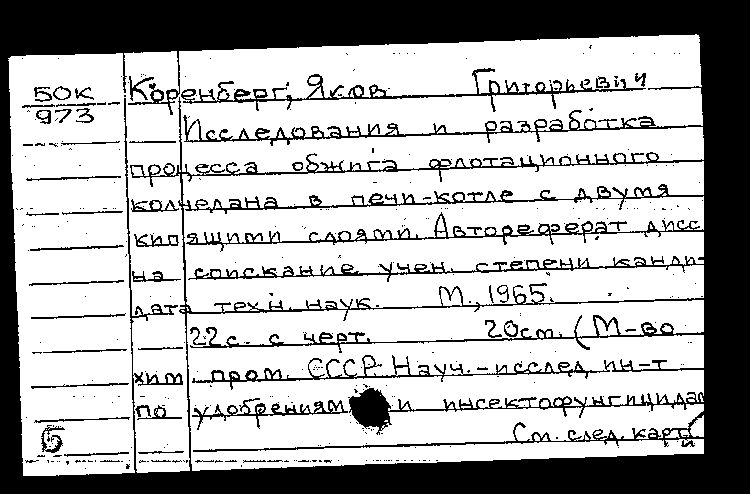 БОК
973
Коренберг, Яков Григорьевич
Исследования и разработка
процесса обжига флотационного
колчедана в печи-котле с двумя
кипящими слоями. Автореферат дисс
на соискание учен. степени канди-
дата техн. наук. М., 1965.
22 с. с черт. 20см. (М-во
хим. пром. СССР. Науч.-исслед. ин-т
по удобрениям и инсектофунгицидам
Б
См. след. карт.